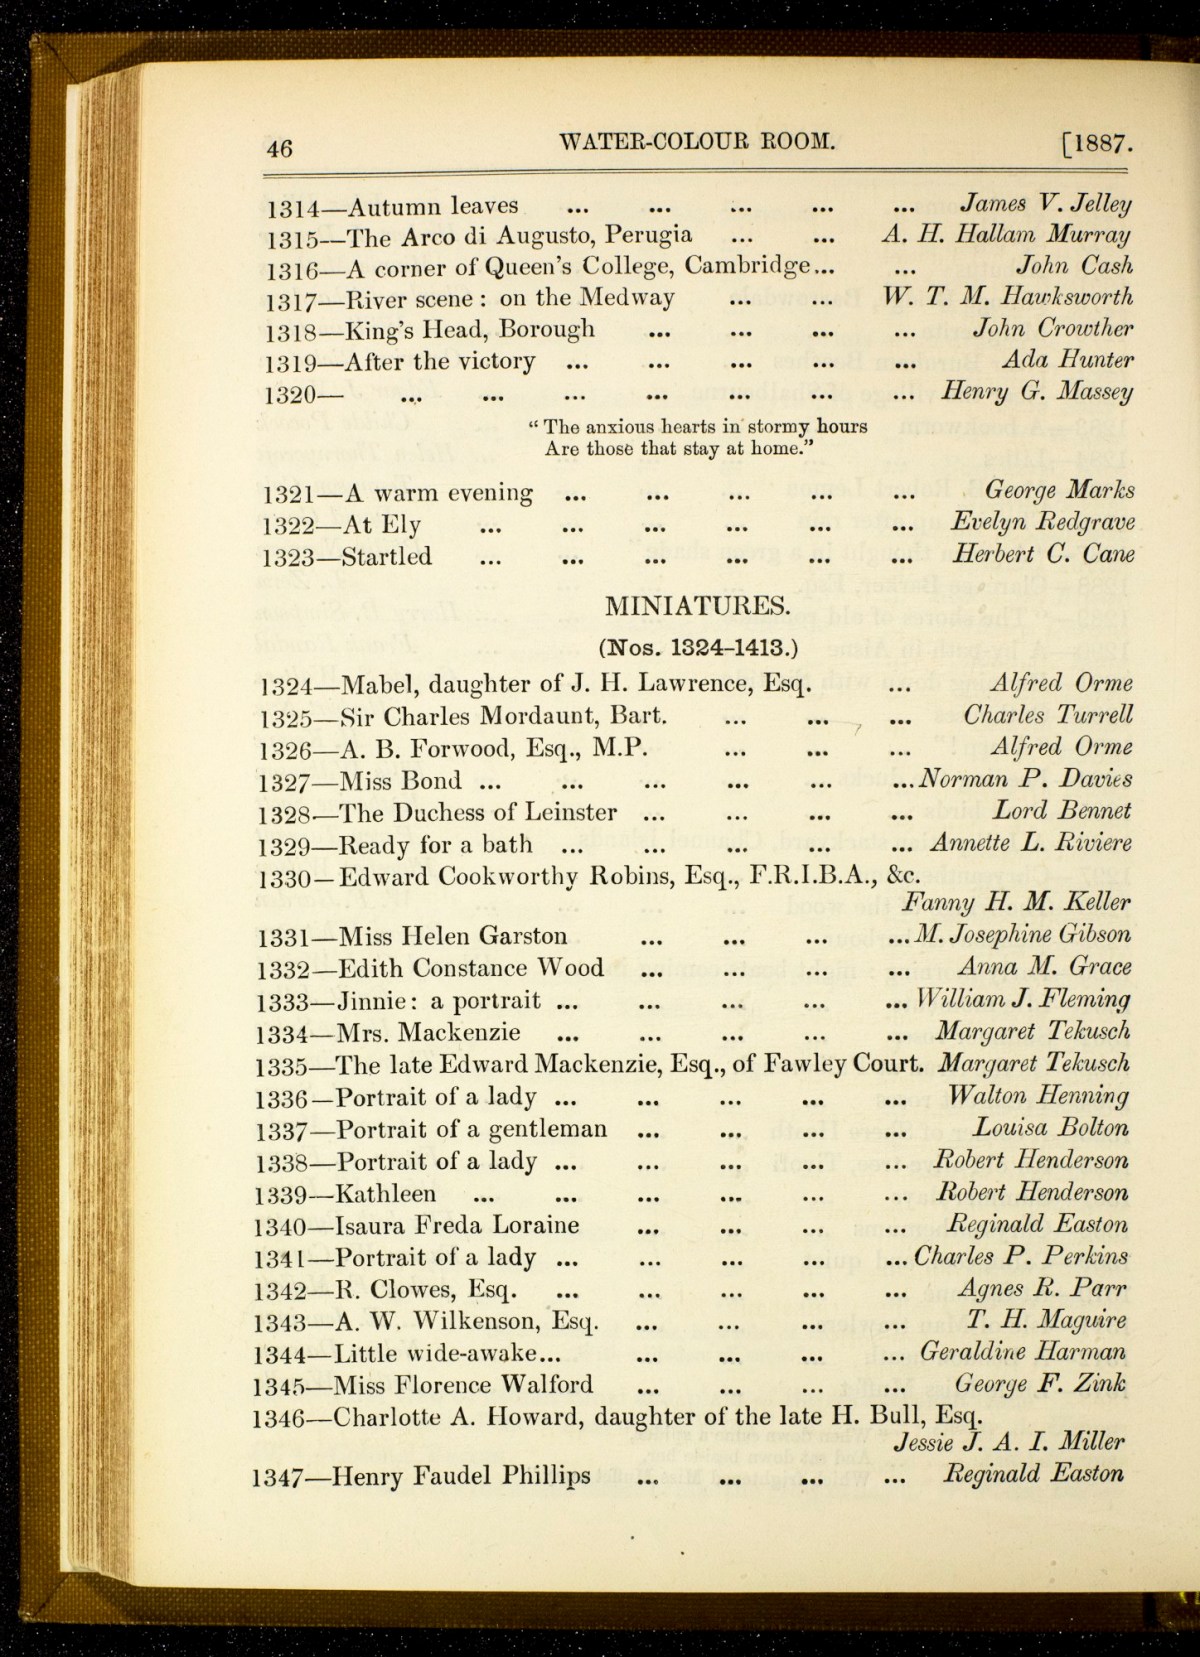 46 WATER-COLOUR ROOM. [1887.
1314—Autumn leaves ... ... ... ... ... James V. Jelley
1315—The Arco di Augusto, Perugia ... ... A. H. Hallam Murray
1316—A corner of Queen's College, Cambridge... ... John Cash
1317—River scene: on the Medway ... ... W. T. M. Hawksworth
1318—King's Head, Borough ... ... ... ... John Crowther
1319—After the victory ... ... ... ... ... Ada Hunter
1320— ... ... ... ... ... ... ... Henry G. Massey
"The anxious hearts in stormy hours
Are those that stay at home."
1321—A warm evening ... ... ... ... ... George Marks
1322—At Ely ... ... ... ... ... ... Evelyn Redgrave
1323—Startled ... ... ... ... ... ... Herbert C. Cane
MINIATURES.
(Nos. 1324-1413.)
1324—Mabel, daughter of J. H. Lawrence, Esq. ... Alfred Orme
1325—Sir Charles Mordaunt, Bart. ... ... ... Charles Turrell
1326—A. B. Forwood, Esq., M.P. ... ... ... Alfred Orme
1327—Miss Bond ... ... ... ... ... ... Norman P. Davies
1328—The Duchess of Leinster ... ... ... ... Lord Bennet
1329—Ready for a bath ... ... ... ... ... Annette L. Riviere
1330—Edward Cookworthy Robins, Esq., F.R.I.B.A., &c.
Fanny H. M. Keller
1331—Miss Helen Garston ... ... ... ... M. Josephine Gibson
1332—Edith Constance Wood ... ... ... ... Anna M. Grace
1333—Jinnie: a portrait ... ... ... ... ... William J. Fleming
1334—Mrs. Mackenzie ... ... ... ... ... Margaret Tekusch
1335—The late Edward Mackenzie, Esq., of Fawley Court. Margaret Tekusch
1336—Portrait of a lady ... ... ... ... ... Walton Henning
1337—Portrait of a gentleman ... ... ... ... Louisa Bolton
1338—Portrait of a lady ... ... ... ... ... Robert Henderson
1339—Kathleen ... ... ... ... ... ... Robert Henderson
1340—Isaura Freda Loraine ... ... ... ... Reginald Easton
1341—Portrait of a lady ... ... ... ... ... Charles P. Perkins
1342—R. Clowes, Esq. ... ... ... ... ... Agnes R. Parr
1343—A. W. Wilkenson, Esq. ... ... ... ... T. H. Maguire
1344—Little wide-awake... ... ... ... ... Geraldine Harman
1345—Miss Florence Walford ... ... ... ... George F. Zink
1346—Charlotte A. Howard, daughter of the late H. Bull, Esq.
Jessie J. A. I. Miller
1347—Henry Faudel Phillips ... ... ... ... Reginald Easton